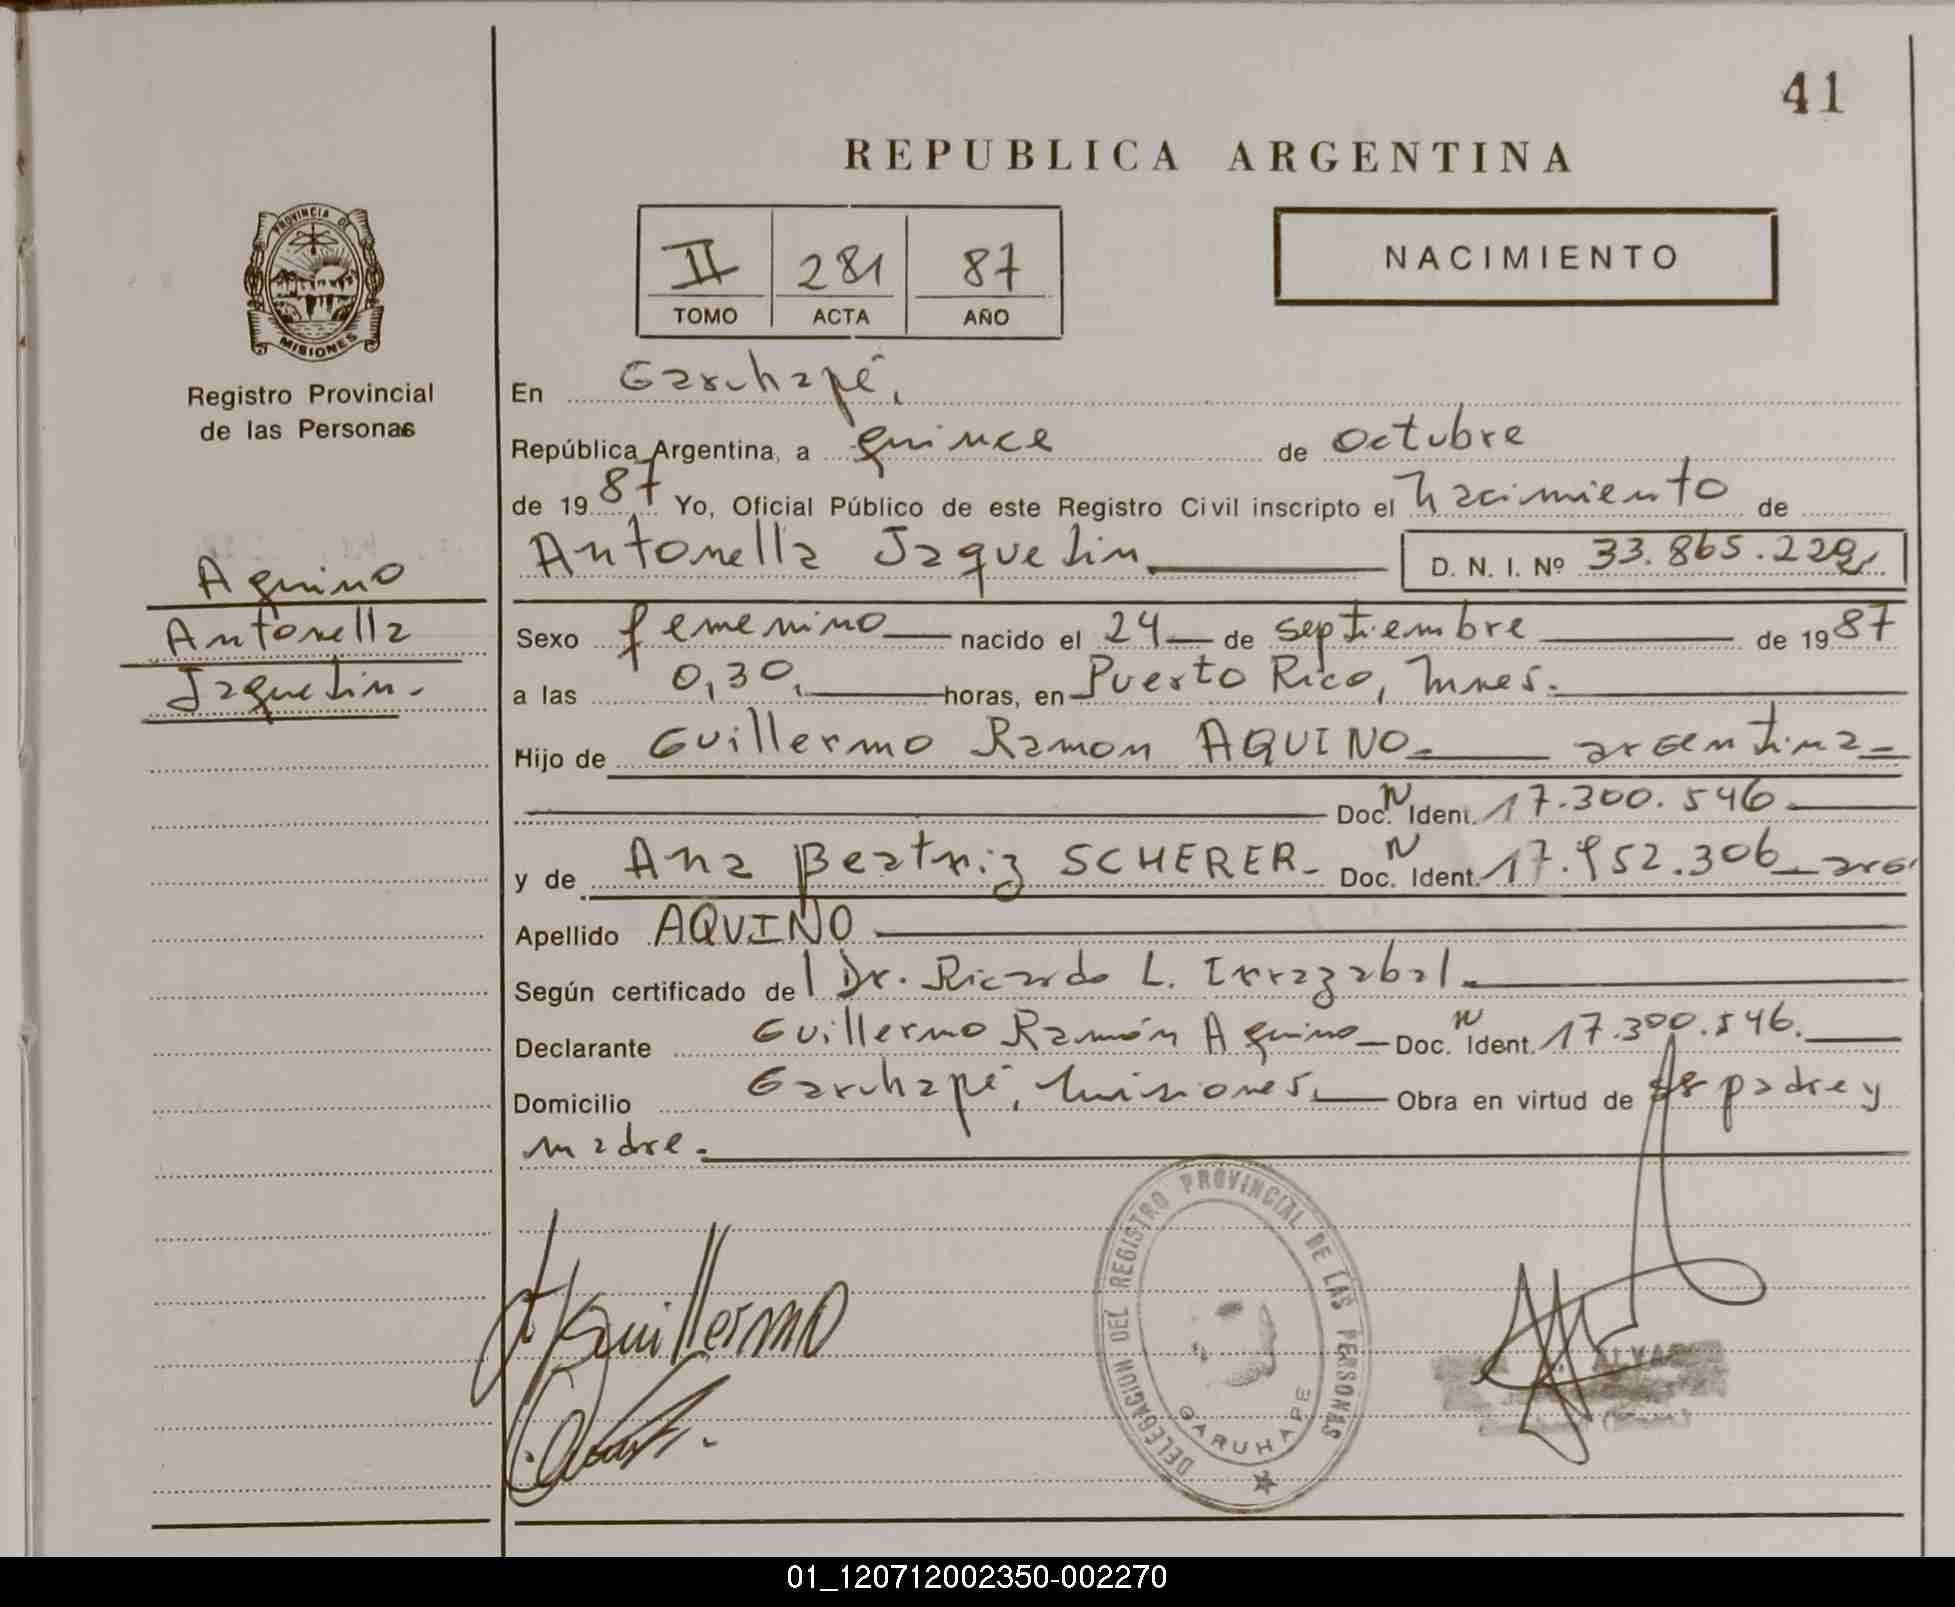 41
REPUBLICA ARGENTINA
II 281 87
TOMO ACTA AÑO
NACIMIENTO
PROVINCIA DE
MISIONES
Registro Provincial
de las Personas
Aquino
Antonella
Jaquelin.
En Garuhapé,
República Argentina, a quince de octubre
de 1987 Yo, Oficial Público de este Registro Civil inscripto el nacimiento de
Antonella Jaquelin D. N. I. Nº 33.865.229
Sexo femenino nacido el 24 de septiembre de 1987
a las 0,30, horas, en Puerto Rico, Mnes.
Hijo de Guillermo Ramon AQUINO argentina
Doc. N Ident. 17.300.546
y de Ana Beatriz SCHERER Doc. N Ident. 17.952.306 arg
Apellido AQUINO
Según certificado del Dr. Ricardo L. Irrazabal.
Declarante Guillermo Ramón Aquino Doc. N Ident. 17.300.546.
Domicilio Garuhapé, Misiones. Obra en virtud de padre y
madre.
Guillermo
DELEGACION DEL REGISTRO PROVINCIAL DE LAS PERSONAS
GARUHAPE
01_120712002350-002270